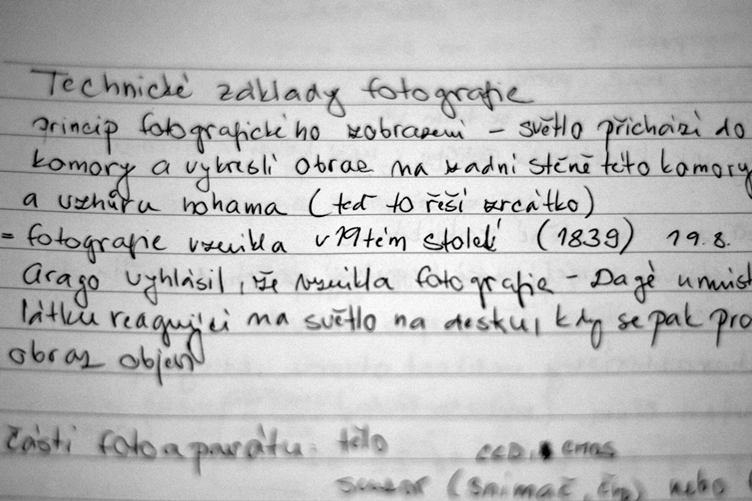 Technické základy fotografie
princip fotografického zobrazení - světlo přichází do
komory a vykreslí obraz na zadní stěně této komory
a vzhůru nohama (teď to řeší zrcátko)
= fotografie vznikla v 19tém století (1839) 19.8.
Arago vyhlásil, že vznikla fotografie - Dagé umíst
látku reagující na světlo na desku, kdy se pak pro
obraz objeví
části fotoaparátu: tělo CCD, CMOS
senzor (snímač, čip) nebo